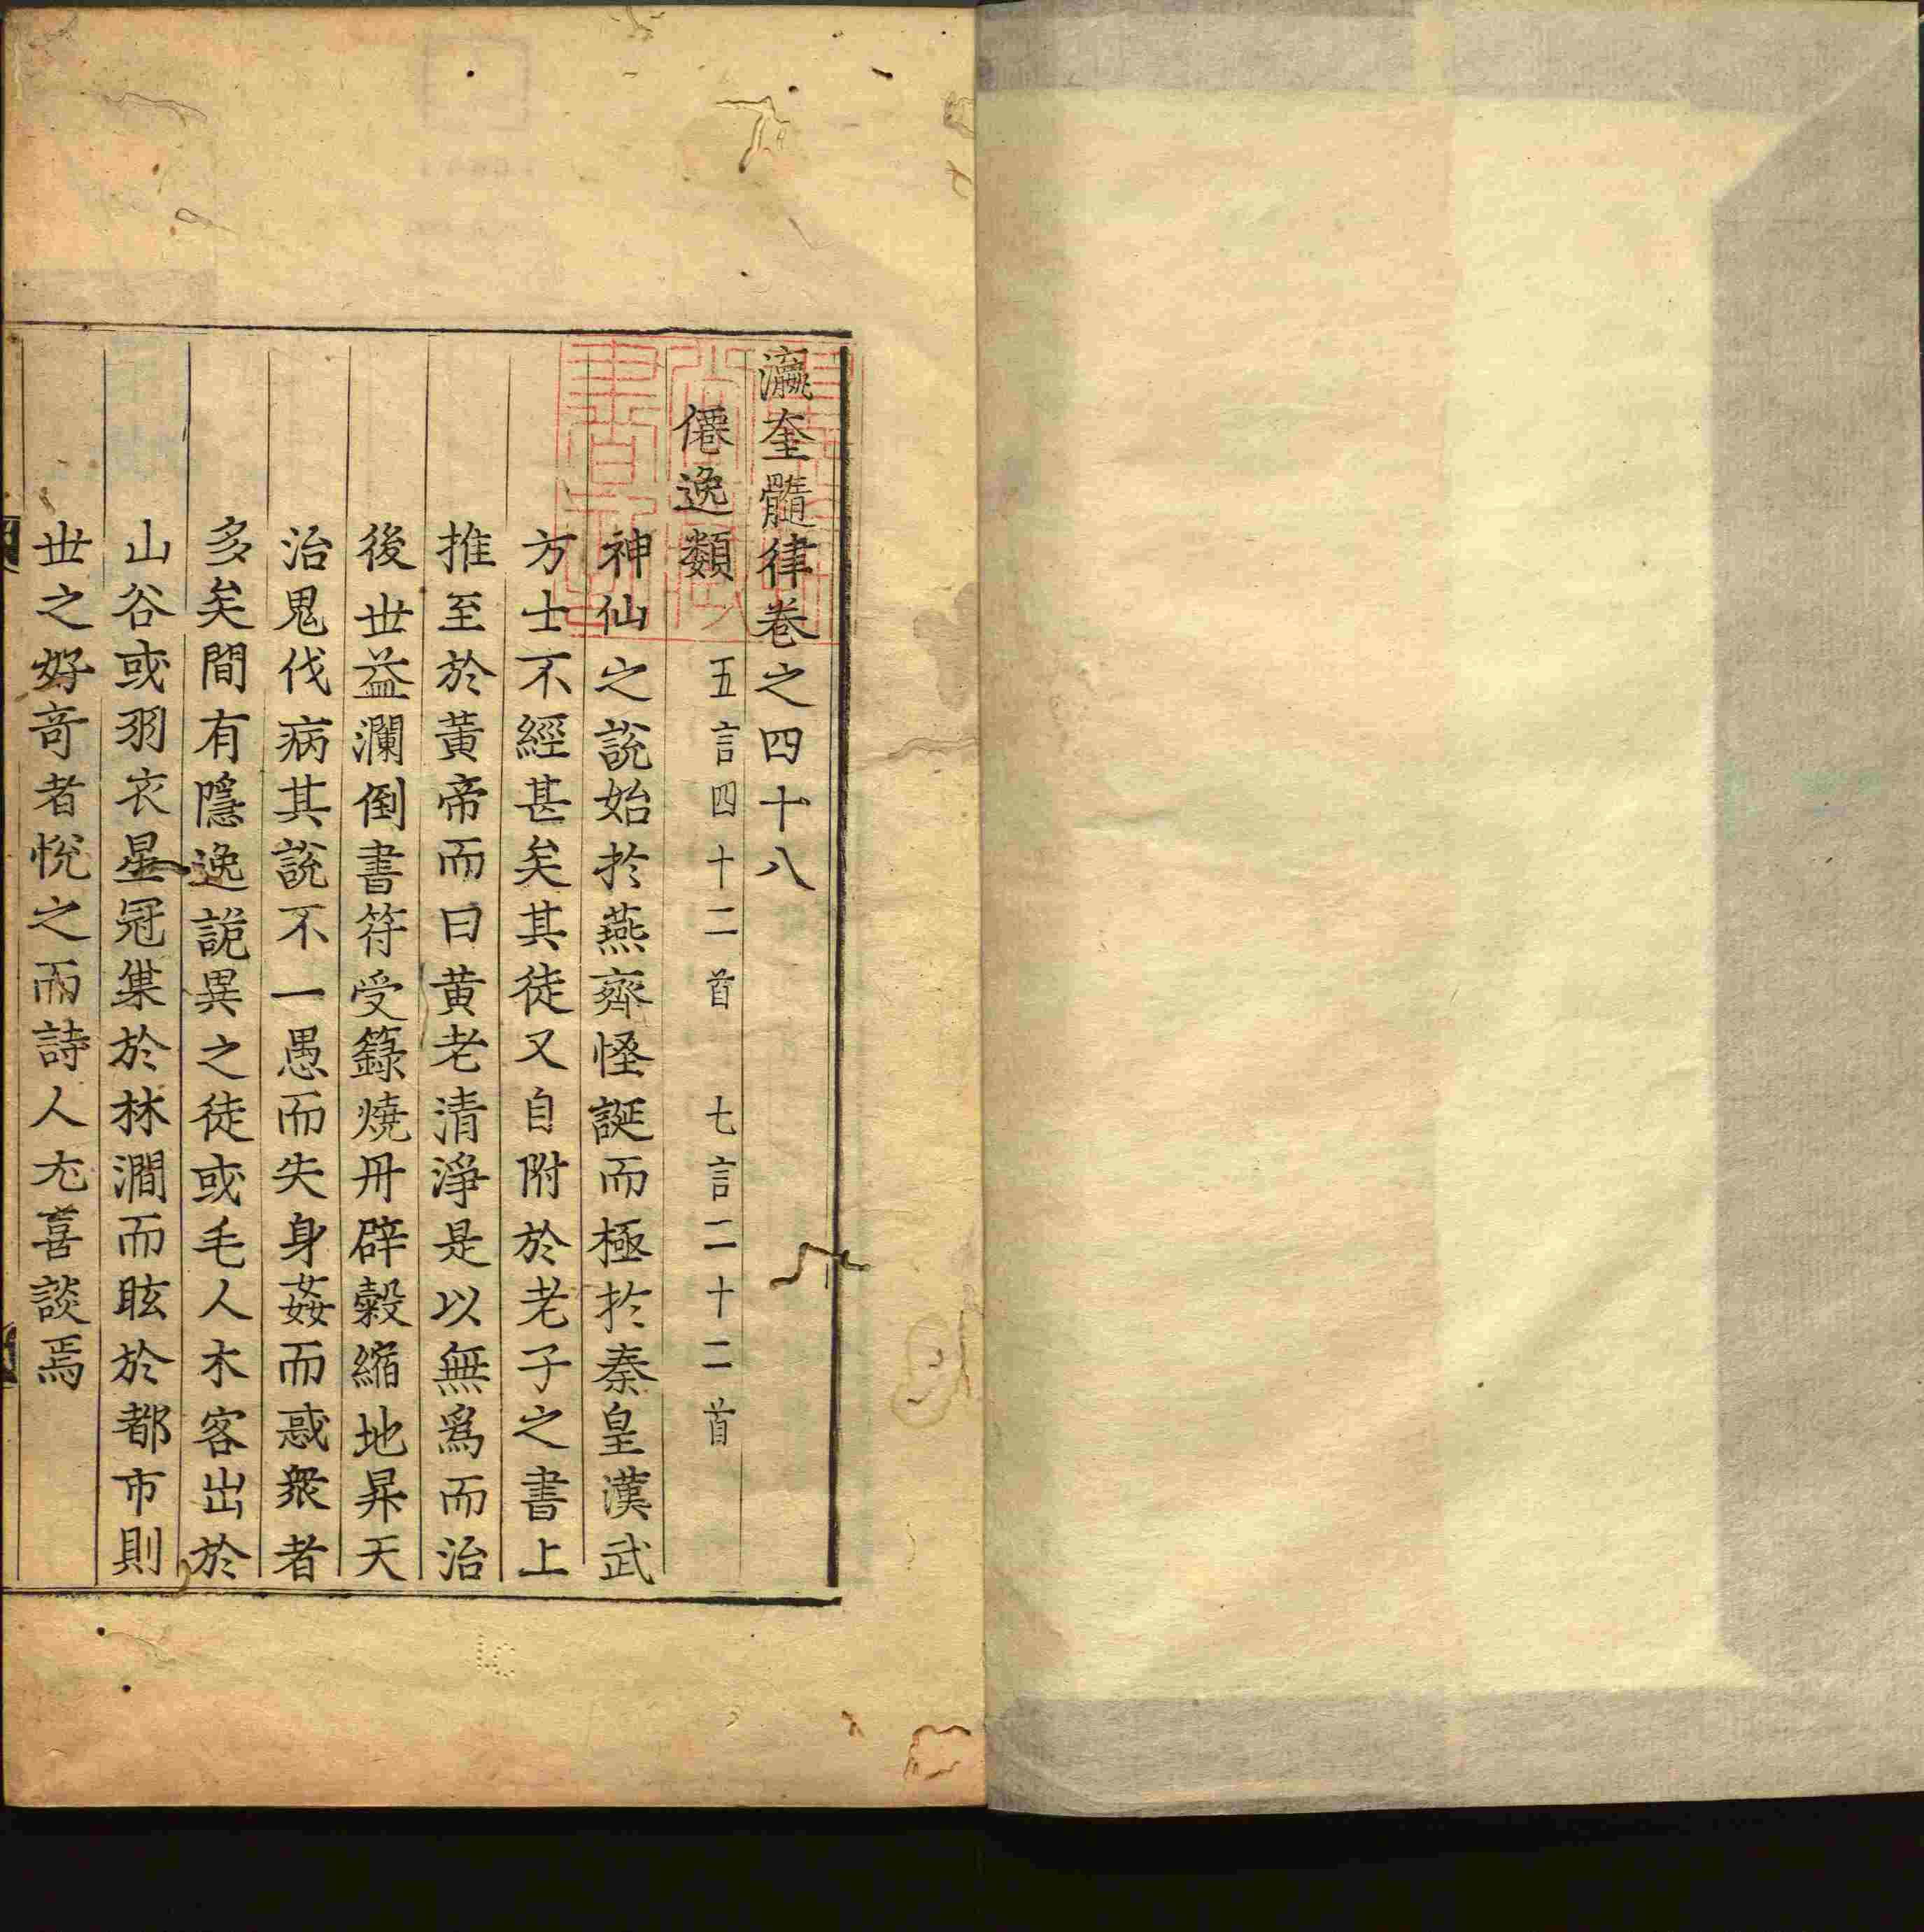 瀛奎髓律卷之四十八
僊逸類 五言四十二首 七言二十二首
神仙之說始於燕齊怪誕而極於秦皇漢武
方士不經甚矣其徒又自附於老子之書上
推至於黃帝而曰黃老清淨是以無爲而治
後世益瀾倒書符受籙燒丹辟糓縮地昇天
治鬼伐病其說不一愚而失身姦而惑衆者
多矣間有隱逸詭異之徒或毛人木客出於
山谷或羽衣星冠集於林澗而眩於都市則
世之好奇者悅之而詩人尤喜談焉